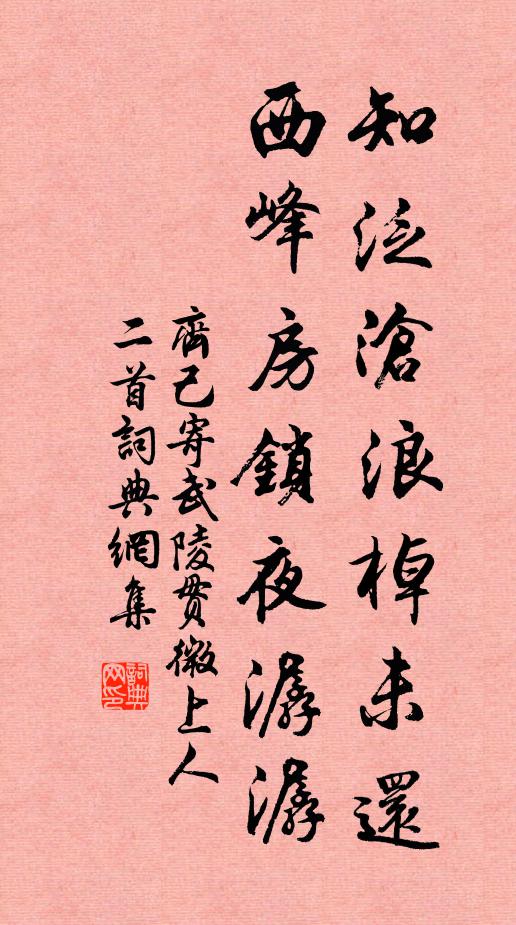 知泛滄浪棹未還
西峰房鎖夜潺潺
齊己寄武陵貫微上人
二首詞典網集
詞典網印